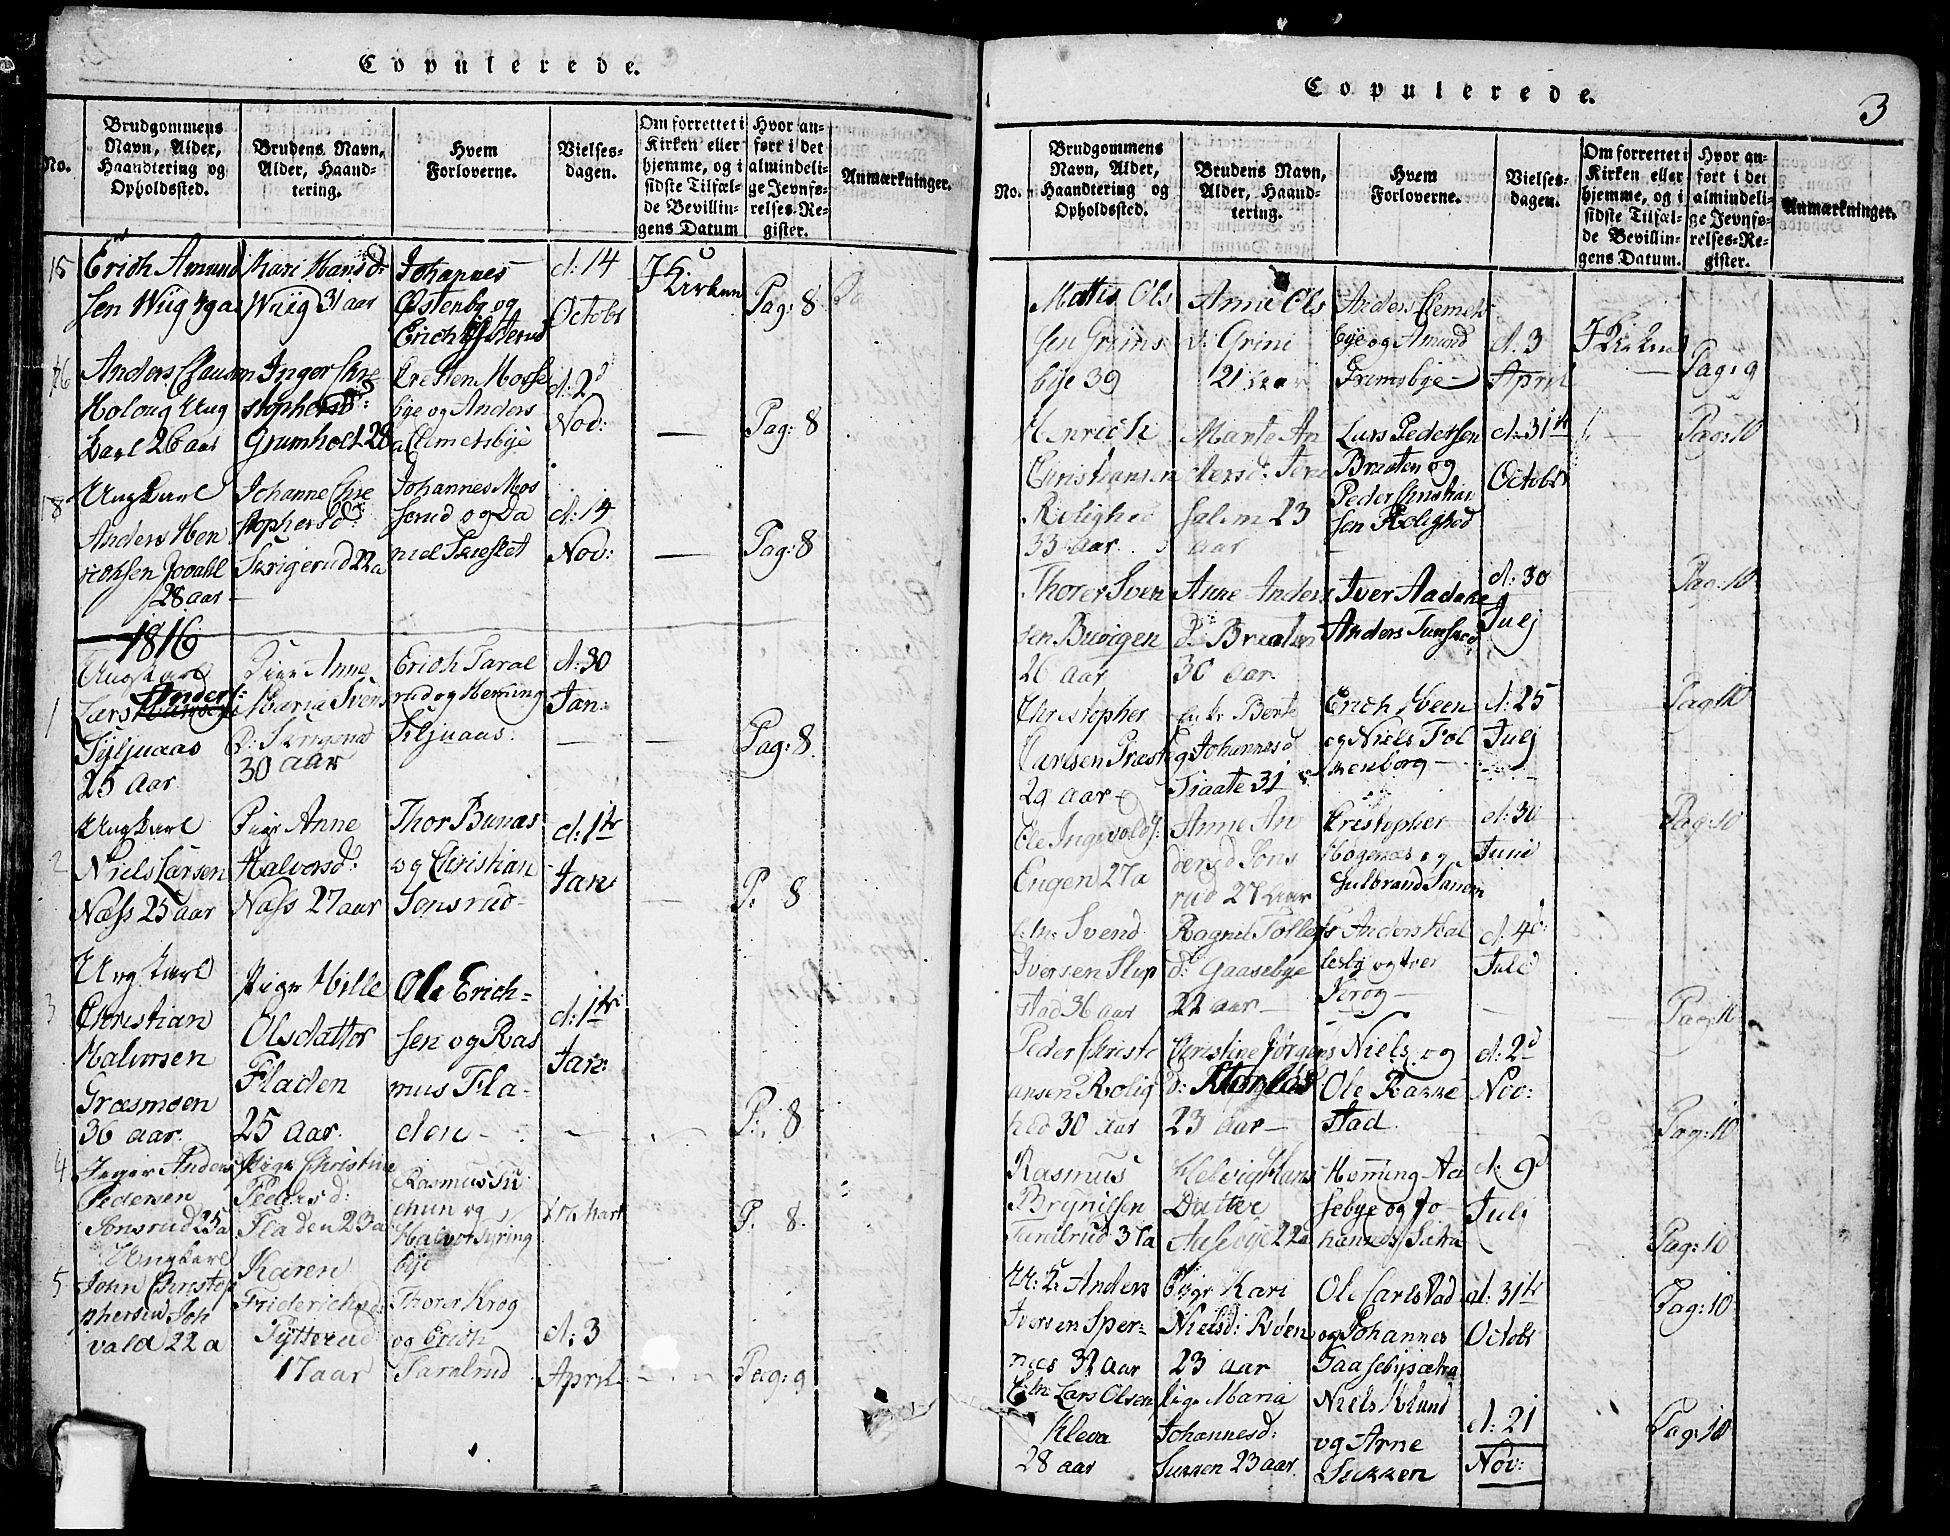 Copulerede.
No.
Brudgommens Navn, Alder, Haandtering og Opholdssted.
Brudens Navn, Alder, Haandtering.
Hvem Forloverne.
Vielses-dagen.
Om forrettet i Kirken eller hjemme, og i sidste Tilfælde Bevillingens Datum
Hvor anført i det almindelige Jevnførelses-Register.
Anmærkninger.
15
Erich Amund
sen Wiig
Kari Hansd:
Wiig 31 aar
Johannes
Østenbg og
Erich
d: 14
Octobr
I Kirken
Pag: 8
16
Anders
Ung
Karl 26 aar
Inger Chre
stophersd:
Grumholt 28
Cresten Mosse
bye og Anders
Clemetsbye
d: 2d
Nov:
Pag: 8
18
Ungkarl
Anders Hen
richsen
28 aar
Johanne Chre
stophersd:
Skrigerud 22 a
Johannes Mos
serud og Da
niel
d: 14
Nov:
Pag: 8
1816
1
Ungkarl
Lars Anders:
25 aar
Pige Anne
Maria Svens
D: Skrigerud
30 aar
Erich Taral
rud og Heming
Siljuaas
d: 30
Jan:
Pag: 8
2
Ungkarl
Niels Larsen
Næss 25 aar
Pige Anne
Halvorsd:
Næss 27 aar
Thor Bunæs
og Christian
Jonsrud
d: 1te
Jan:
P. 8
3
Ungkarl
Christian
Halvorsen
Græsmoen
36 aar.
Pige Hille
Olsdatter
Fladen
25 aar.
Ole Erich=
sen og Ras
mus Fla-
den
d: 1te
Jan:
P. 8
4
Anders
Pedersen
Jonsrud 25 a
Pige Christine
Peders d:
Fladen 23 a
Rasmus
og
Halvor
bye
P. 8.
5
Ungkarl
John Christop
phersen Joh
vald 22 a
Karen
Friderichsd:
Tytterud
17 aar
Thorer Krog
og Erich
Taralrud
d: 3
April
Pag: 9
Copulerede.
3
No.
Brudgommens Navn, Alder, Haandtering og Opholdssted.
Brudens Navn, Alder, Haandtering.
Hvem Forloverne.
Vielses-dagen.
Om forrettet i Kirken eller hjemme, og i sidste Tilfælde Bevillingens Datum.
Hvor anført i det almindelige Jevnførelses-Register.
Anmærkninger.
Mattis Ols
sen Griins
bye 39
Anne Ols
d: Grini
21 aar
Anders Clemets
bye og Amund
Fremsbye
d. 3
April
I Kirken
Pag: 9
Henrich
Christiansen
Rolighed
33 aar.
Marte An
dersd:
salem 23
aar
Lars Pedersen
Braaten og
Peder Christian
sen Rolighed
d: 31te
Octobr
Pag: 10
Thorer Sven
sen
26 aar
Anne Anders
d: Braaten
36 aar.
Iver
Anders
d: 30
Julj
Pag: 10
Christopher
Carlsen
29 aar
Enke Berte
Johannesd
31
Erich Heen
og Niels Fol
kenborg
d: 25
Julj
Pag: 10
Ole Ingevolds:
Engen 27 a
Anne An
dersd Jons
rud 27 aar
Crestopher
Hogenæs og
Gulbrand
d: 30
Junii
Pag: 10
Svend
Iversen Slip
stad 36 aar
Ragnil Tollefs
d: Gaasebye
22 aar
Anders Hal
lesby og Iver
Krog
d: 4d
Pag: 10
Peder Christi
ansen Rolig
hed 30 aar
Christine Jørgens
d:
23 aar
Niels og
Ole Rakke
stad
d: 2d
Nov:
Pag: 10
Rasmus
Brynilsen
37 a
Helvig Hans
Datter
22 a
Heming Aa
sebye og Jo
hannes
d: 9d
Julj
Pag: 10
Anders
Iversen Sper=
næs 32 aar
Pige Kari
Nielsd:
23 aar
Ole Carlstad
og Johannes
Gaasebysætra
d: 31te
Octobr
Pag: 10
Lars Olsen
Kleva
28 aar
Pige Maria
Johannesd:
Sukken 23 aar.
Niels Klund
og Arne
Sukken
d: 21
Nov:
Pag: 10